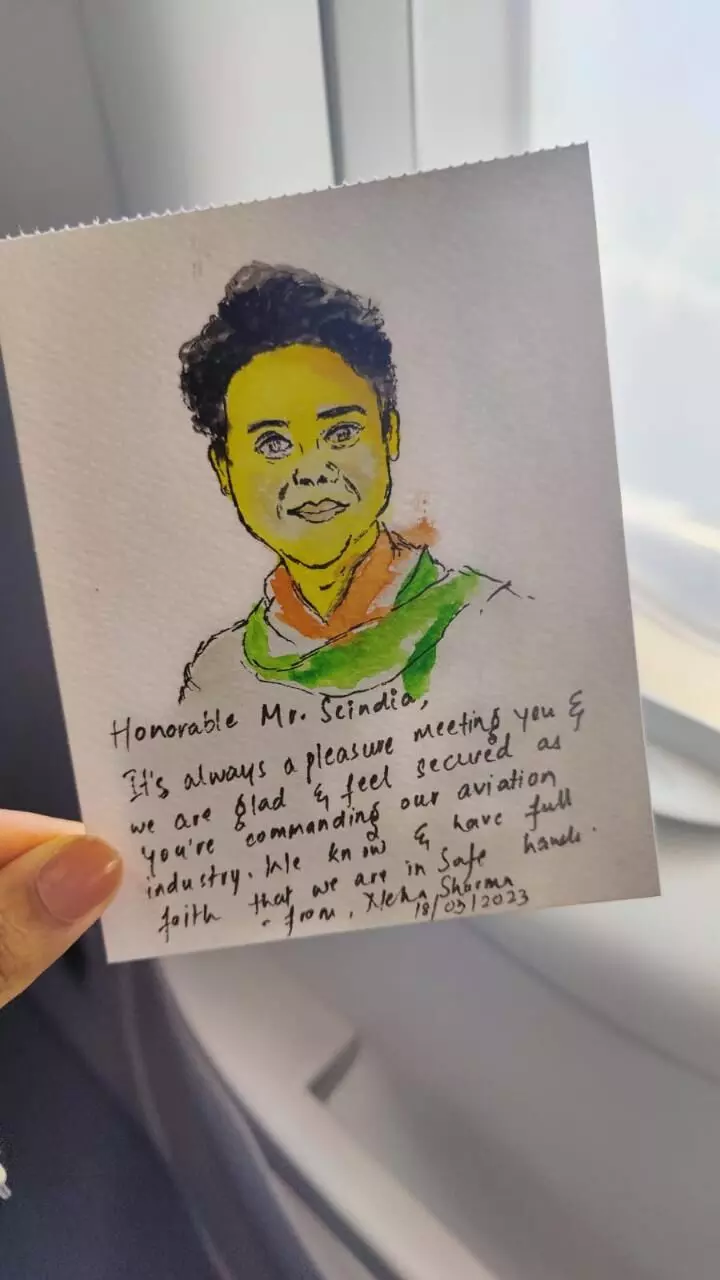 Honorable Mr. Scindia,
It's always a pleasure meeting you &
we are glad & feel secured as
you're commanding our aviation
industry. We know & have full
faith that we are in safe hands.
- from, Neha Sharma
18/05/2023